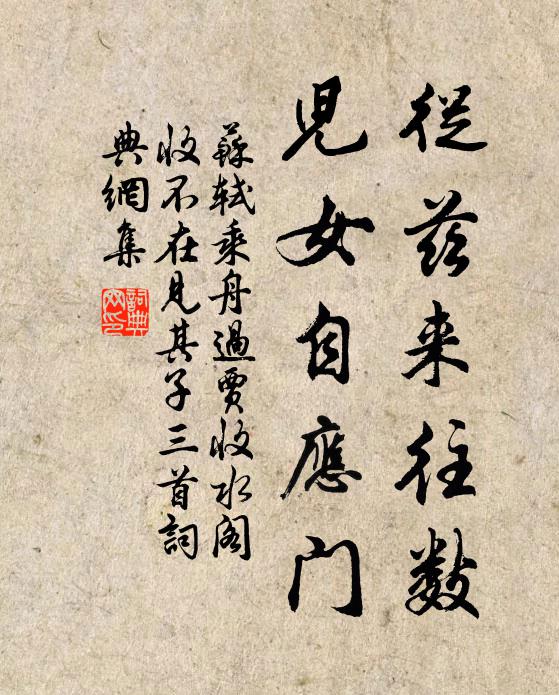 從茲來往數
兒女自應門
蘇軾乘舟過賈收水閣
收不在見其子三首詞
典網集
詞典
网印